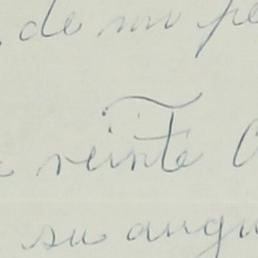 de mi pe
veinte
su angu